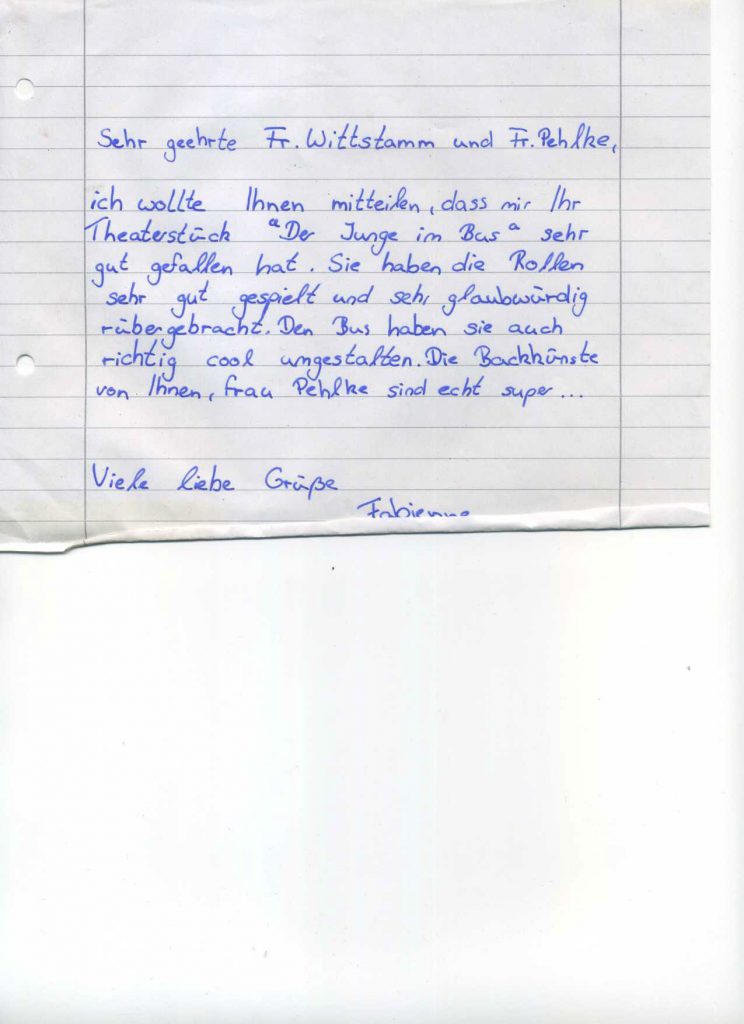 Sehr geehrte Fr. Wittstamm und Fr. Pehlke,
ich wollte Ihnen mitteilen, dass mir Ihr
Theaterstück "Der Junge im Bus" sehr
gut gefallen hat. Sie haben die Rollen
sehr gut gespielt und sehr glaubwürdig
rübergebracht. Den Bus haben sie auch
richtig cool umgestalten. Die Backkünste
von Ihnen, Frau Pehlke sind echt super...
Viele liebe Grüße
Fabienne